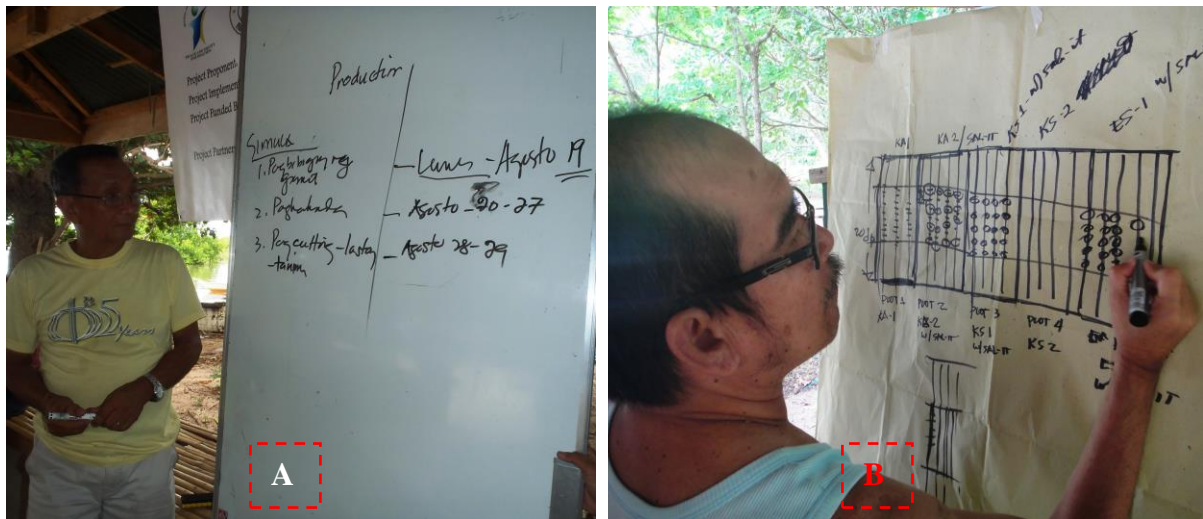 Project Proponent
Project Implement
Project Funded B
Project Partner
Production
Simula
1. Pagbibigay ng
— Lunes - Agosto 19
2. Paghahanda — Agosto - 20 - 27
3. Pagcutting -
- tanim — Agosto 28-29
5 Years
A
KS-1 - w/ sal-it
KS-2
ES-1 w/ SAL
KA 1
KA 2 / SAL-IT
PLOT 1
KA-1
PLOT 2
w/SAL-IT
PLOT 3
KS1
w/SAL-IT
PLOT 4
KS 2
IT
B